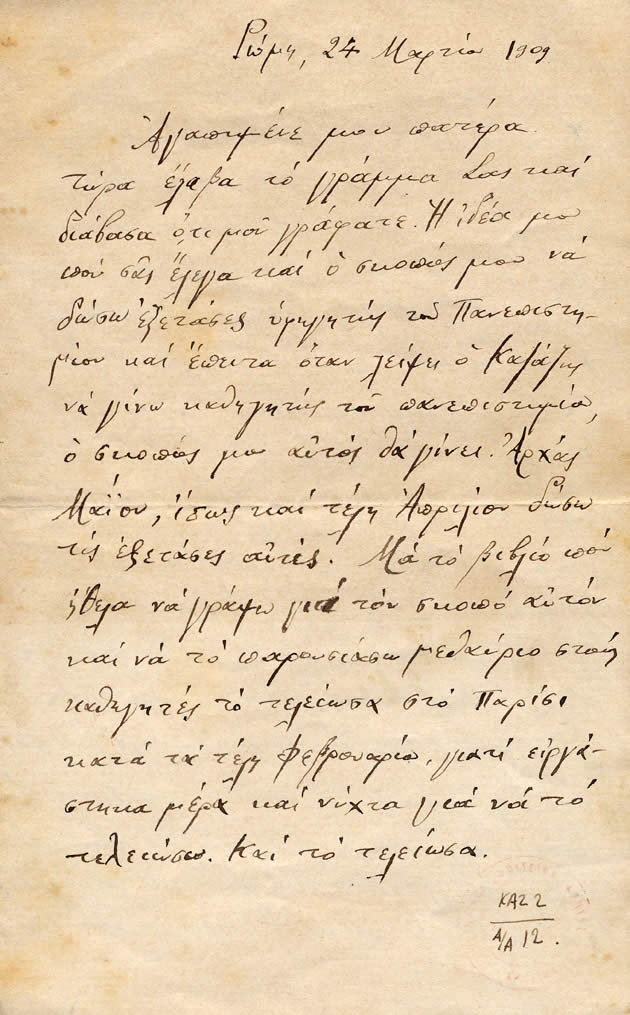 Ρώμη, 24 Μαρτίου 1909
Ἀγαπημένε μου πατέρα.
τώρα ἔλαβα τό γράμμα Σας καί
διάβασα ὅτι μοῦ γράφατε. Ἡ ἰδέα μου
πού σᾶς ἔλεγα καί ὁ σκοπός μου νά
δώσω ἐξετάσες ὑφηγητής τοῦ Πανεπιστη-
μίου καί ἔπειτα ὅταν λείψει ὁ Καζάζης
νά γίνω καθηγητής τοῦ πανεπιστημίου,
ὁ σκοπός μου αὐτός θά γίνει. Ἀρχάς
Μαΐου, ἴσως καί τέλη Ἀπριλίου δώσω
τίς ἐξετάσες αὐτές. Μά τό βιβλίο πού
ἤθελα νά γράψω γιά τόν σκοπό αὐτόν
καί νά τό παρουσιάσω μεθαύριο στούς
καθηγητές τό τελείωσα στό Παρίσι
κατά τά τέλη Φεβρουαρίου, γιατί εἰργά-
στηκα μέρα καί νύχτα γιά νά τό
τελειώσω. Καί τό τελείωσα.
ΚΑΖ 2
Α/Α 12.